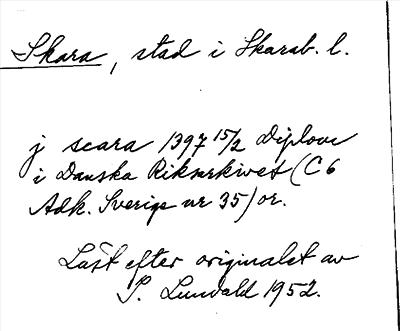 Skara, stad i Skarab. l.
j scara 1397 15/2 Diplom
i Danska Riksarkivet (C 6
Adk. Sverige nr 35) or.
Läst efter originalet av
P. Linvald 1952.